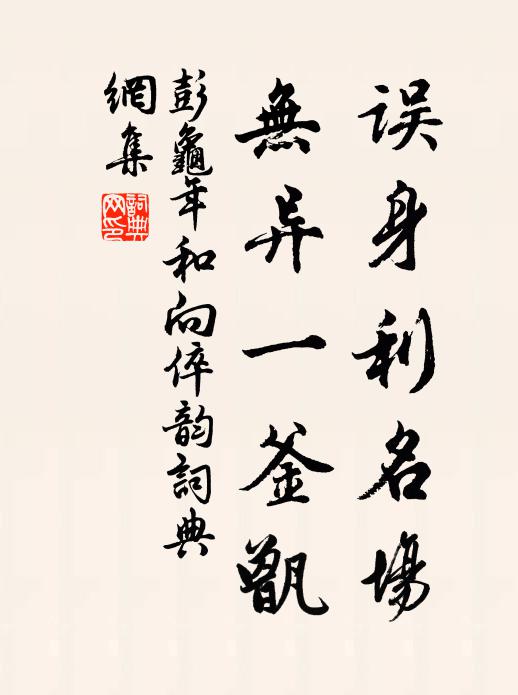 误身利名場
無异一釜甑
彭龜年和向倅韵詞典
網集
詞典网印